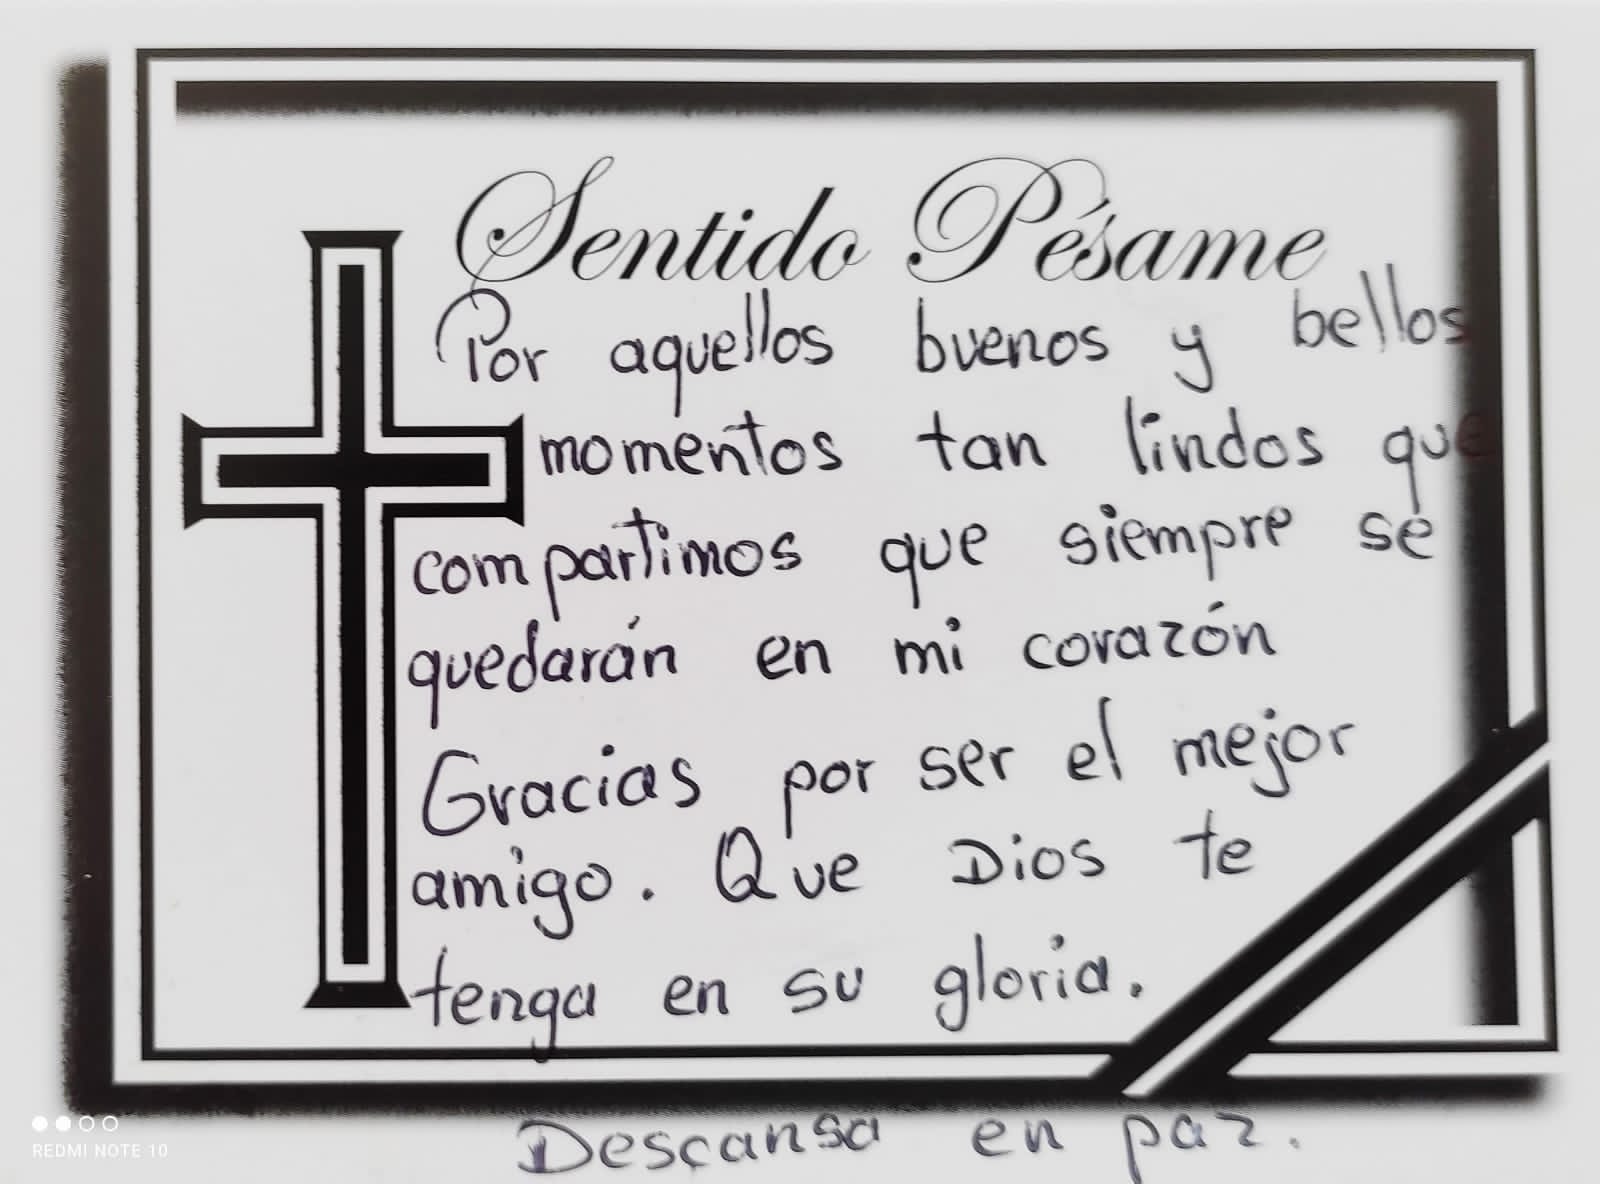 Sentido Pésame
Por aquellos buenos y bellos
momentos tan lindos que
compartimos que siempre se
quedarán en mi corazón
Gracias por ser el mejor
amigo. Que Dios te
tenga en su gloria.
Descansa en paz.
REDMI NOTE 10